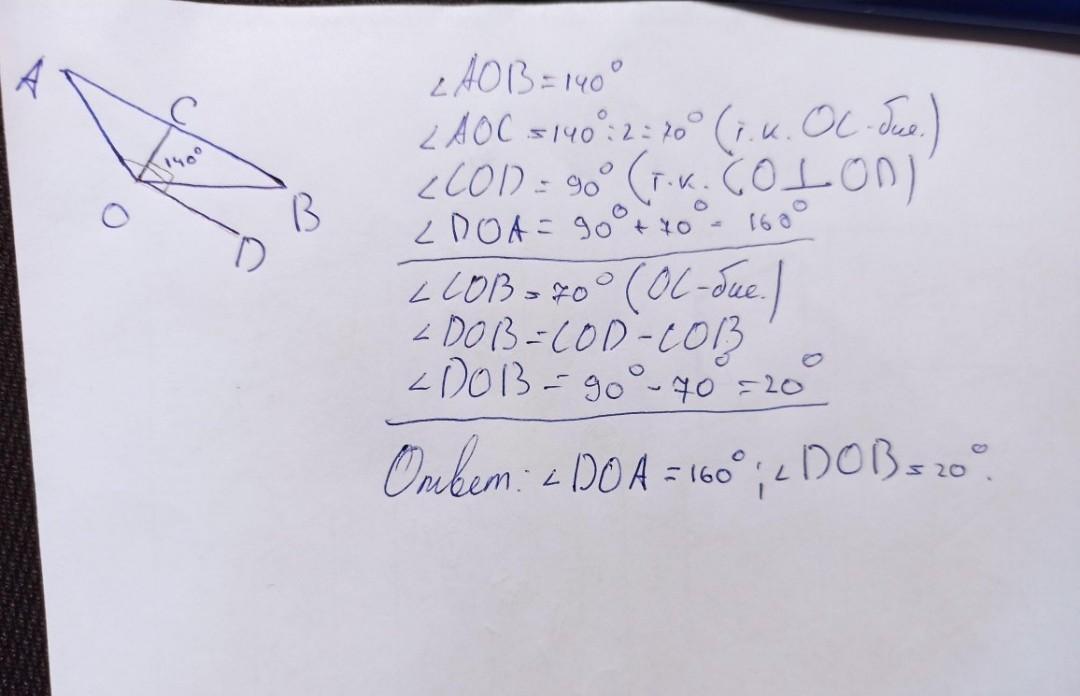 A
C
140°
O
B
D
∠AOB=140°
∠AOC=140°:2=70° (т.к. OC-бис.)
∠COD=90° (т.к. CO⊥OD)
∠DOA=90°+70°=160°
∠COB=70° (OC-бис.)
∠DOB=COD-COB
∠DOB=90°-70°=20°
Ответ: ∠DOA=160°; ∠DOB=20°.